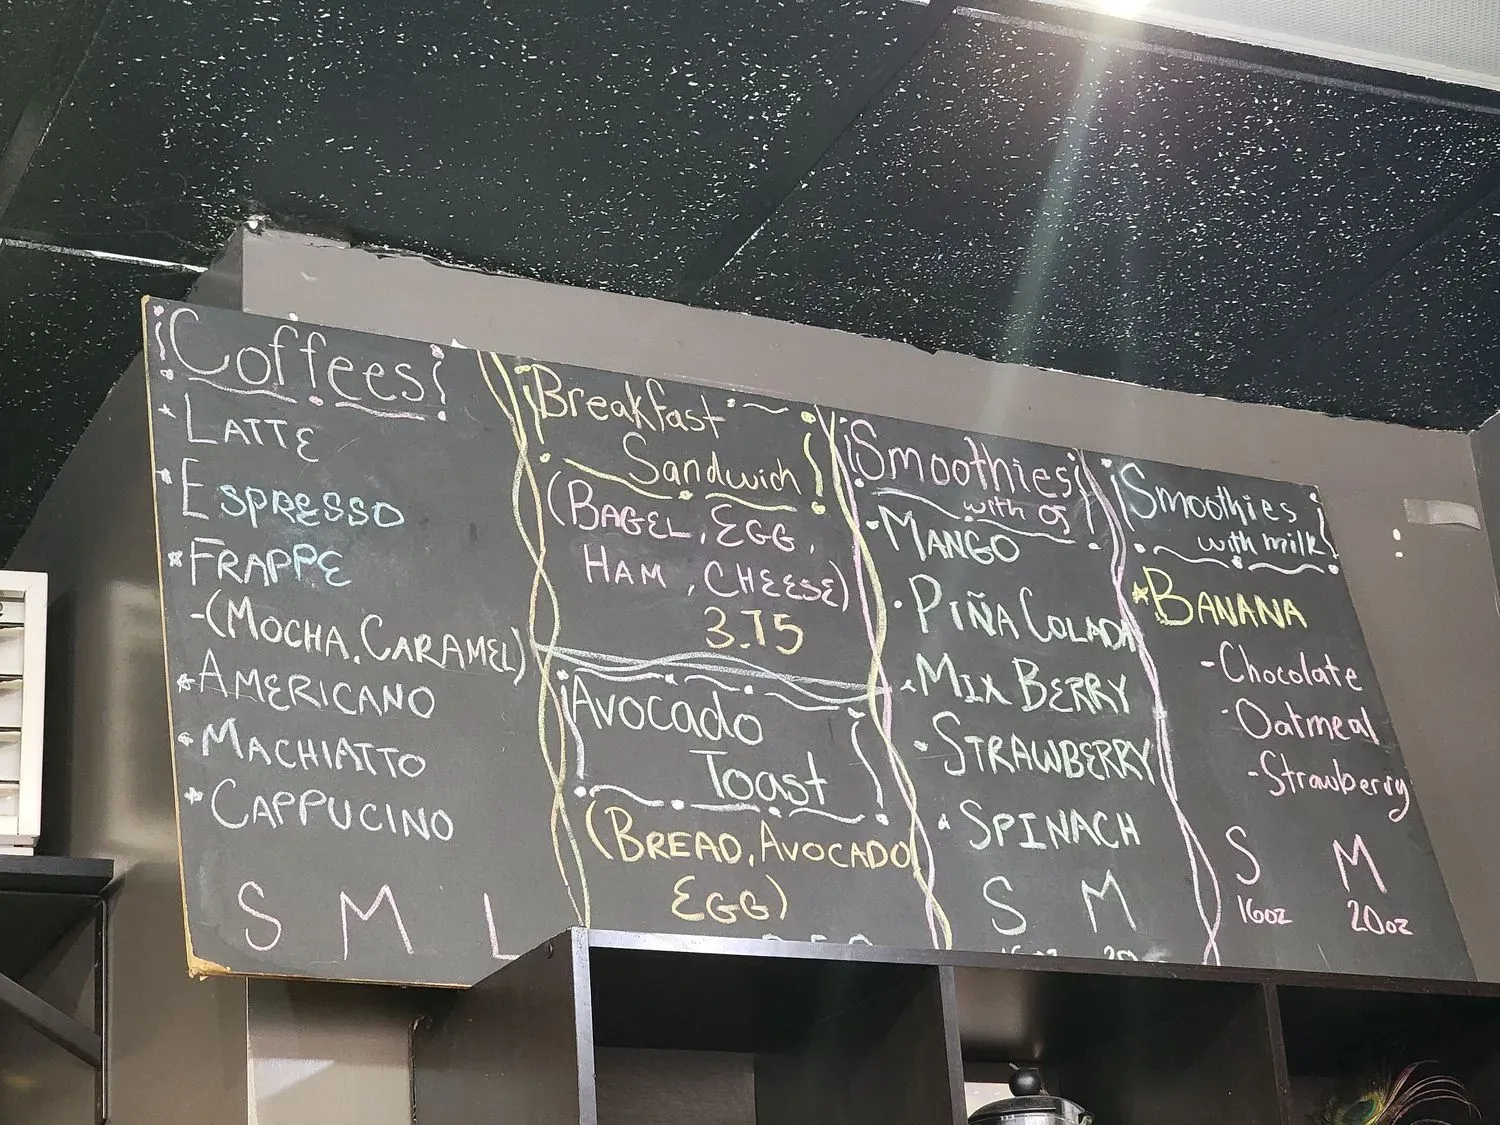 ¡Coffees!
* LATTE
* ESPRESSO
* FRAPPE
-(MOCHA, CARAMEL)
* AMERICANO
* MACHIATTO
* CAPPUCINO
S M L
¡Breakfast
Sandwich!
(BAGEL, EGG,
HAM, CHEESE)
3.75
¡Avocado
Toast!
(BREAD, AVOCADO
EGG)
¡Smoothies!
with OJ
• MANGO
• PIÑA COLADA
• MIX BERRY
• STRAWBERRY
• SPINACH
S M
¡Smoothies
with milk!
* BANANA
-Chocolate
-Oatmeal
-Strawberry
S M
16oz 20oz